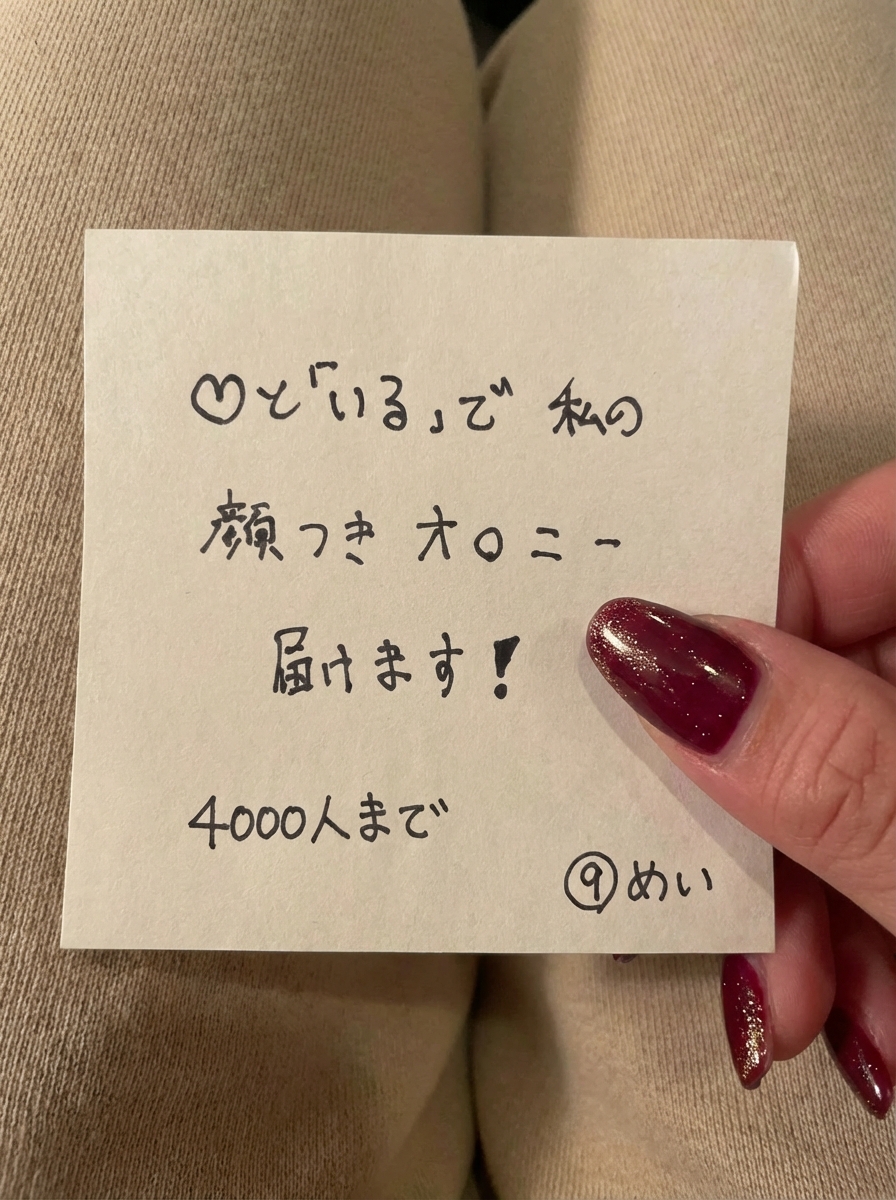 ♡と「いる」で 私の
顔つき オ○ニー
届けます!
4000人まで
⑨めい